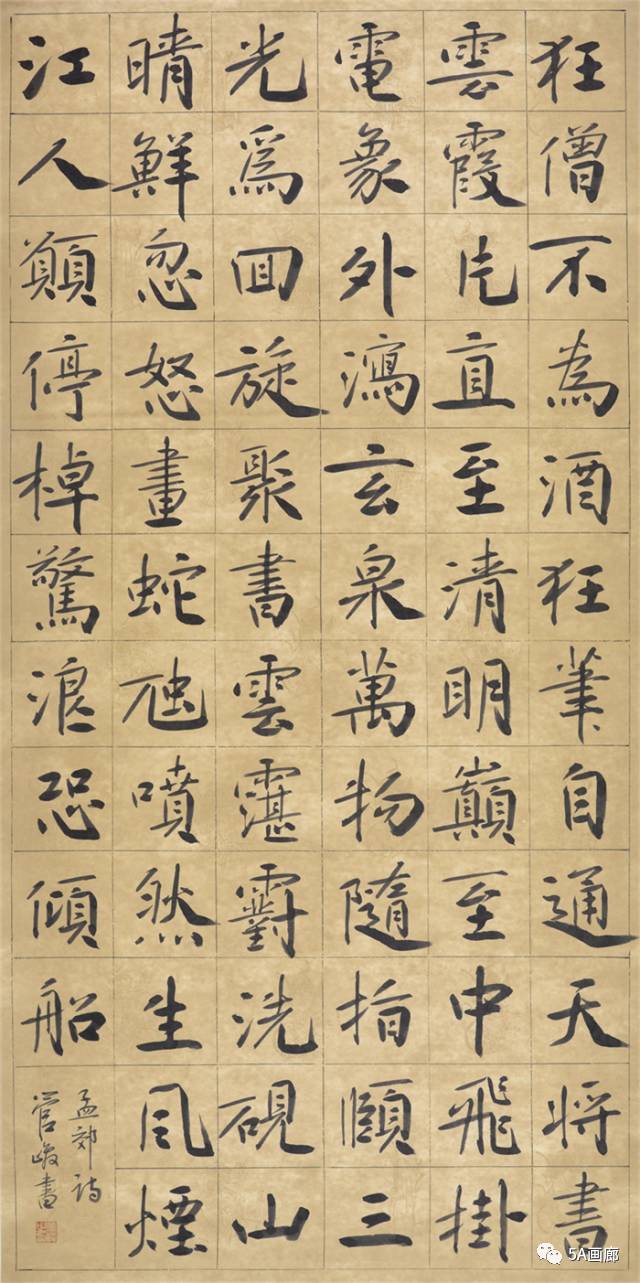 狂僧不為酒狂筆自通天將書
雲霞片直至清明巔至中飛掛
電象外瀉玄泉萬物隨指顧三
光爲回旋聚書雲霮䨴洗硯山
晴鮮忽怒畫蛇虺噴然生風煙
江人顛停棹驚浪恐傾船
孟郊詩
管峻書
5A画廊